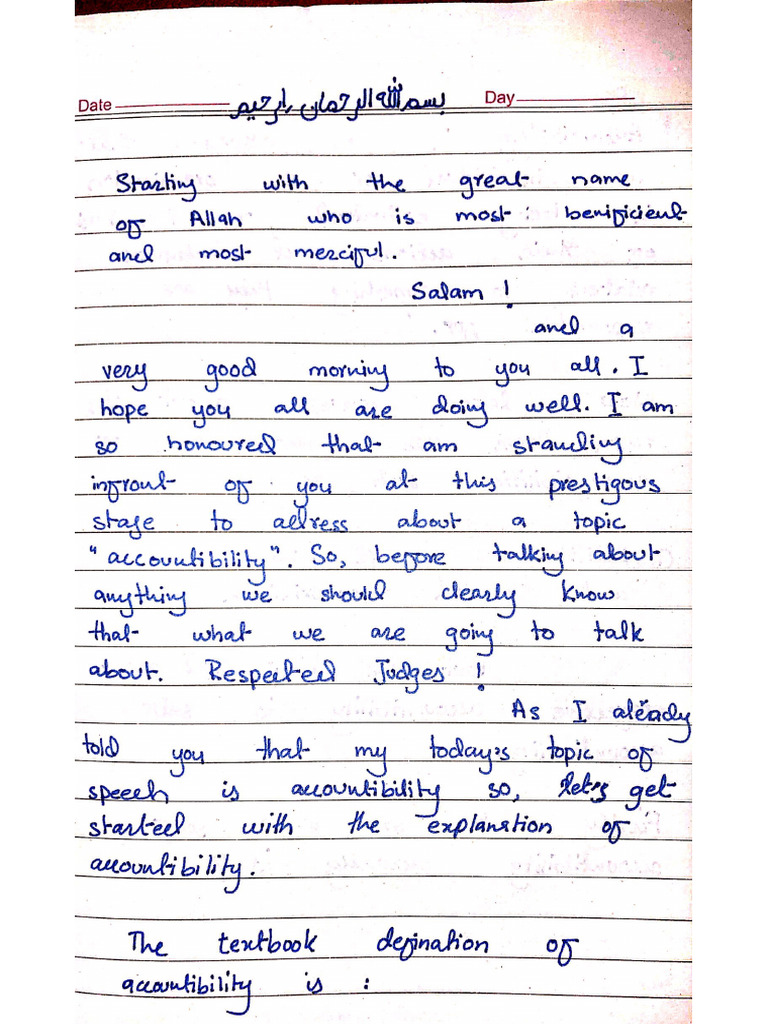 Date بسم الله الرحمان ارحيم Day
Starting with the great name
of Allah who is most benificient
and most merciful.
Salam !
and a
very good morning to you all. I
hope you all are doing well. I am
so honoured that am standing
infront of you at this prestigous
stage to adress about a topic
"accountibility". So, before talking about
anything we should clearly know
that what we are going to talk
about. Respected Judges !
As I already
told you that my today's topic of
speech is accountibility so, let's get
started with the explanation of
accountibility.
The textbook defination of
accountibility is :